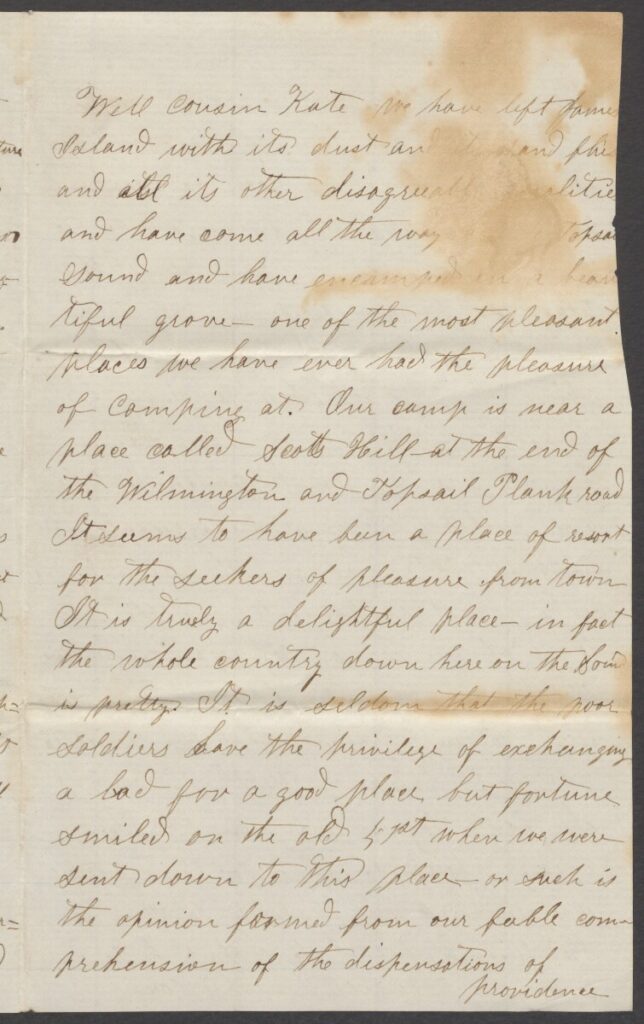 Well cousin Kate we have left James
Island with its dust and and flies
and all its other disagreeable qualities
and have come all the way Topsail
Sound and have encamped in a beau
tiful grove — one of the most pleasant
places we have ever had the pleasure
of camping at. Our camp is near a
place called Scotts Hill — at the end of
the Wilmington and Topsail Plank road
It seems to have been a place of resort
for the seekers of pleasure from town
It is truely a delightful place — in fact
the whole country down here on the Sound
is pretty. It is seldom that the poor
soldiers have the privilege of exchanging
a bad for a good place but fortune
smiled on the old 51st when we were
sent down to this place — or such is
the opinion formed from our fable com=
prehension of the dispensations of
providence